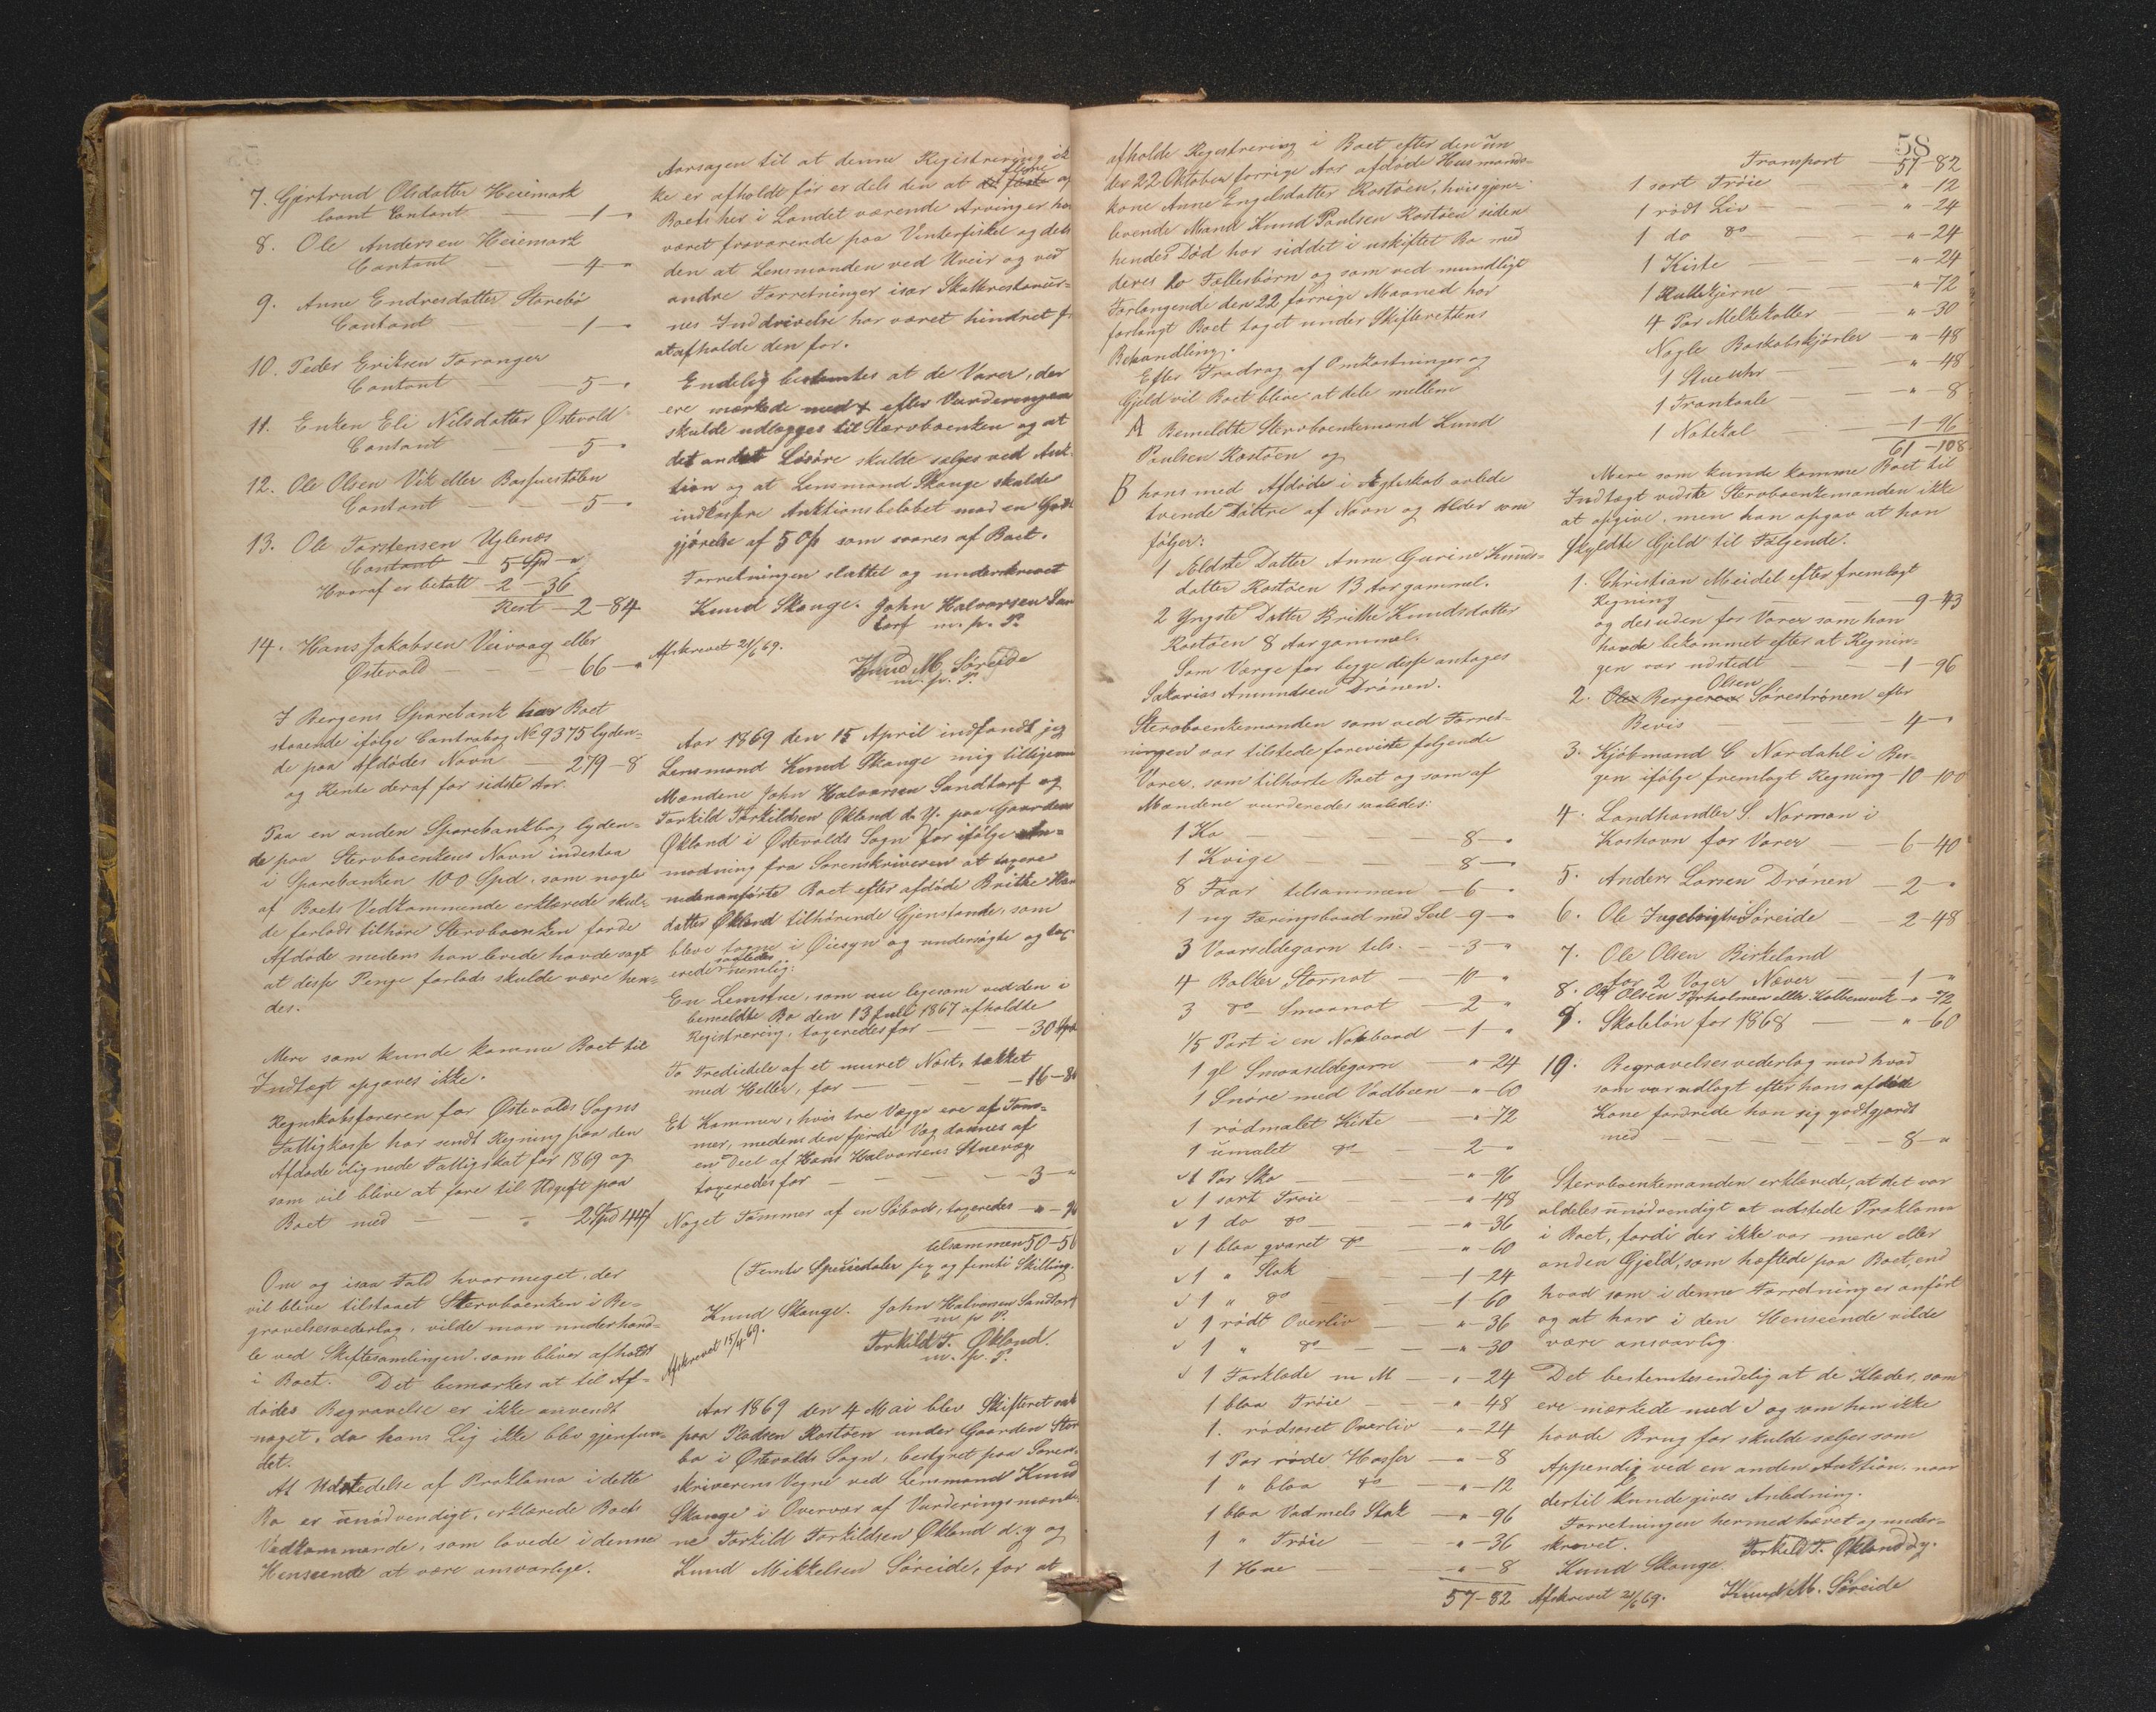 7. Gjertrud Olsdatter Heiemark
laant Contant — 1 – "
8. Ole Andersen Heiemark
Contant — 4 – "
9. Anne Endresdatter Storebø
Contant — 1 – "
10. Peder Eriksen Foranger
Contant — 5 – "
11. Enken Eli Nilsdatter Østevold
Contant — 5 – "
12. Ole Olsen Vik eller
Contant — 5 – "
13. Ole Torstensen Uglenæs
Contant — 5 Spd – "
Hvoraf er betalt 2 – 36
Rest – 2 – 84
14. Hans Jakobsen Veivaag eller
Østevold — 66 – "
I Bergens Sparebank har Boet
staaende ifølge Contrabog No 9375 lyden-
de paa Afdødes Navn — 279 – 8
og Rente deraf for sidste Aar.
Paa en anden Sparebankbog lyden-
de paa Stervboenkens Navn indestaa
i Sparebanken 100 Spd, som nogle
af Boets Vedkommende erklærede skul-
de forlods tilhøre Stervboenken fordi
Afdøde medens han levede havde sagt
at disse Penge forlods skulde være hen-
des.
Mere som kunde komme Boet til
Indtægt opgaves ikke.
Regnskabsføreren for Østevolds Sogns
Fattigkasse har sendt Regning paa den
Afdøde ilignede Fattigskat for 1869 og
som vil blive at føre til Udgift paa
Boet med — — " 2 Spd 44 ß
Om og isaa Fald hvormeget, der
vil blive tilstaaet Stervboenken i Be-
gravelsesvederlag, vilde man underhand-
le ved Skiftesamlingen, som bliver afholdt
i Boet. Det bemærkes at til Af-
dødes Begravelse er ikke anvendt
noget, da hans Lig ikke blev gjenfun-
det.
At Udstedelse af Proklama i dette
Bo er unødvendigt, erklærede Boets
Vedkommende, som lovede i denne
Henseende at være ansvarlige.
Aarsagen til at denne Registrering ik
ke er afholdt før er dels den at flere af
Boets her i Landet værende Arvinger har
været fraværende paa Vinterfisket og dels
den at Lensmanden ved Uveir og ved
andre Forretninger især Skatterestancer-
nes Inddrivelse har været hindret fra
at afholde den før.
Endelig bestemtes at de Varer, der
ere mærkede med + efter Vurderingen
skulde udlægges til Stervboenken og at
det andet Løsøre skulde sælges ved Auk-
tion og at Lensmand Skauge skulde
indkassere Auktionsbeløbet mod en Godt-
gjørelse af 5 O/o som svares af Boet.
Forretningen sluttet og underskrevet
Knud Skauge. John Halvorsen San
torf m. p. P.
Afskrevet 21/6 69.
Knud M. Søreide
m. p. P.
Aar 1869 den 15 April indfandt jeg
Lensmand Knud Skauge mig tilligemed
Mændene John Halvorsen Sandtorf og
Torkild Torkildsen Økland d. y. paa Gaarden
Økland i Østevolds Sogn for ifølge An-
modning fra Sorenskriveren at taxere
nedenanførte Boet efter afdøde Brithe Han
datter Økland tilhørende Gjenstande, som
bleve tagne i Øiesyn og undersøgte og tax-
erede saaledes nemlig:
En Lemstue, som nu ligesom ved den i
bemeldte Bo den 13 Juli 1867 afholdte
Registrering, taxeredes for — 30 Spd
To Trediedele af et muret Nøst, takket
med Heller, for — — 16 – 80
Et Kammer, hvis tre Vægge ere af Tøm-
mer, medens den fjerde Væg dannes af
en Deel af Hans Halvorsens Stuevæg
taxeredes for — — 3 – "
Noget Tømmer af en Søbod, taxeredes – " – 96
tilsammen 50 – 56
(Femti Speciedaler sex og femti Skilling.
Knud Skauge. John Halvorsen Sandtorf
m. p. P.
Afskrevet 15/4 69.
Torkild T. Økland.
m. p. P.
Aar 1869 den 4 Mai blev Skifteret sat
paa Pladsen Rostøen under Gaarden Store-
bø i Østevolds Sogn, bestyret paa Soren-
skriverens Vegne ved Lensmand Knud
Skauge i Overvær af Vurderingsmænde-
ne Torkild Torkildsen Økland d. y og
Knud Mikkelsen Søreide, for at
58
afholde Registrering i Boet efter den un
der 22 Oktober forrige Aar afdøde Husmands-
kone Anne Engelsdatter Rostøen, hvis gjen-
levende Mand Knud Paulsen Rostøen siden
hendes Død har siddet i uskiftet Bo med
deres to Fællesbørn og som ved mundligt
Forlangende den 22 forrige Maaned har
forlangt Boet taget under Skifterettens
Behandling.
Efter Fradrag af Omkostninger og
Gjeld vil Boet blive at dele mellem
A Bemeldte Stervboenkemand Knud
Paulsen Rostøen og
B hans med Afdøde i Ægteskab avlede
tvende Døttre af Navn og Alder som
følger:
1 Ældste Datter Anne Gurine Knuds-
datter Rostøen 13 Aar gammel.
2 Yngste Datter Brithe Knudsdatter
Rostøen 8 Aar gammel.
Som Værge for begge disse antages
Sakarias Amundsen Drønen.
Stervboenkemanden som ved Forret-
ningen var tilstede foreviste følgende
Varer, som tilhørte Boet og som af
Mændene vurderedes saaledes:
1 Ko — 8 – "
1 Kvige — 8 – "
8 Faar tilsammen – 6 – "
1 ny Færingsbaad med Seil – 9 – "
3 Vaarsildegarn tils. – 3 – "
4 Bolker Stornot — 10 – "
3 do Smaanot — 2 – "
1/5 Part i en Notebaad – 1 – "
1 gl Smaasildegarn " – 24
1 Snøre med Vadbeen – " – 60
1 rødmalet Kiste — " – 72
1 umalet do — 2 – "
v 1 Par Sko — " – 96
v 1 sort Trøie — " – 48
v 1 do do — " – 36
v 1 blaa qvaret do — " – 60
v 1 " Stak — 1 – 24
v 1 " do — 1 – 60
v 1 rødt Overliv — " – 36
v 1 " do — " – 30
v 1 Forklæde m M — " – 24
1 blaa Trøie — " – 48
1. rødsaset Overliv — " – 24
1 Par røde Hosser — " – 8
1 " blaa do — " – 12
1 blaa Vadmels Stak — " – 96
1 " Trøie — " – 36
1 Hue — " – 8
57 – 82
Transport 57 – 82
1 sort Trøie — " – 12
1 rødt Liv — " – 24
1 do do — " – 24
1 Kiste — " – 24
1 Rullekjerne — " – 72
4 Par Melkekoller — " – 30
Nogle Boskabskjørler — " – 48
1 Stueuhr — " – 48
1 — " – 8
1 — 1 – 96
61 – 108
Mere som kunde komme Boet til
Indtægt vidste Stervboenkemanden ikke
at opgive, men han opgav at han
skyldte Gjeld til Følgende:
1. Christian Meidel efter fremlagt
Regning — 9 – 43
og desuden for Varer som han
havde bekommet efter at Regnin-
gen var udstedt — 1 – 96
2. Berge Olsen Sørestrønen efter
Bevis — 4 – "
3. Kjøbmand C Nordahl i Ber-
gen ifølge fremlagt Regning – 10 – 100
4. Landhandler S. Norman i
Koshavn for Varer — 6 – 40
5. Anders Larsen Drønen — 2 – "
6. Ole Søreide — 2 – 48
7. Ole Olsen Birkeland
for 2 Voger Næver — 1 – "
8. Ole Olsen eller " 72
9. Skoleløn for 1868 — " – 60
10. Begravelsesvederlag mod hvad
som var udlagt efter hans afdøde
Kone fordrede han sig godtgjordt
med — — 8 – "
Stervboenkemanden erklærede, at det var
aldeles unødvendigt at udstede Proklama
i Boet, fordi der ikke var mere eller
anden Gjeld, som hæftede paa Boet, end
hvad som i denne Forretning er anført
og at han i den Henseende vilde
være ansvarlig.
Det bestemtes endelig at de Klæder, som
ere mærkede med v og som han ikke
havde Brug for skulde sælges som
Appendix ved en anden Auktion, naar
dertil kunde gives Anledning.
Forretningen hermed hævet og under-
skrevet.
Knud Skauge. Torkild T. Økland d. y.
Afskrevet 21/6 69. Knud M. Søreide